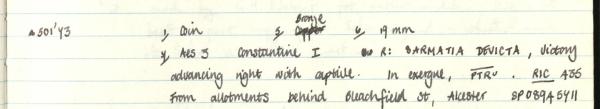 A501'Y3 1, Coin 5, Bronze 6, 19 mm
4, Aes 3 Constantine I R: SARMATIA DEVICTA, Victory
advancing right with captive. In exergue, PTRU. RIC 435
From allotments behind Bleachfield St, Alcester SP08945711